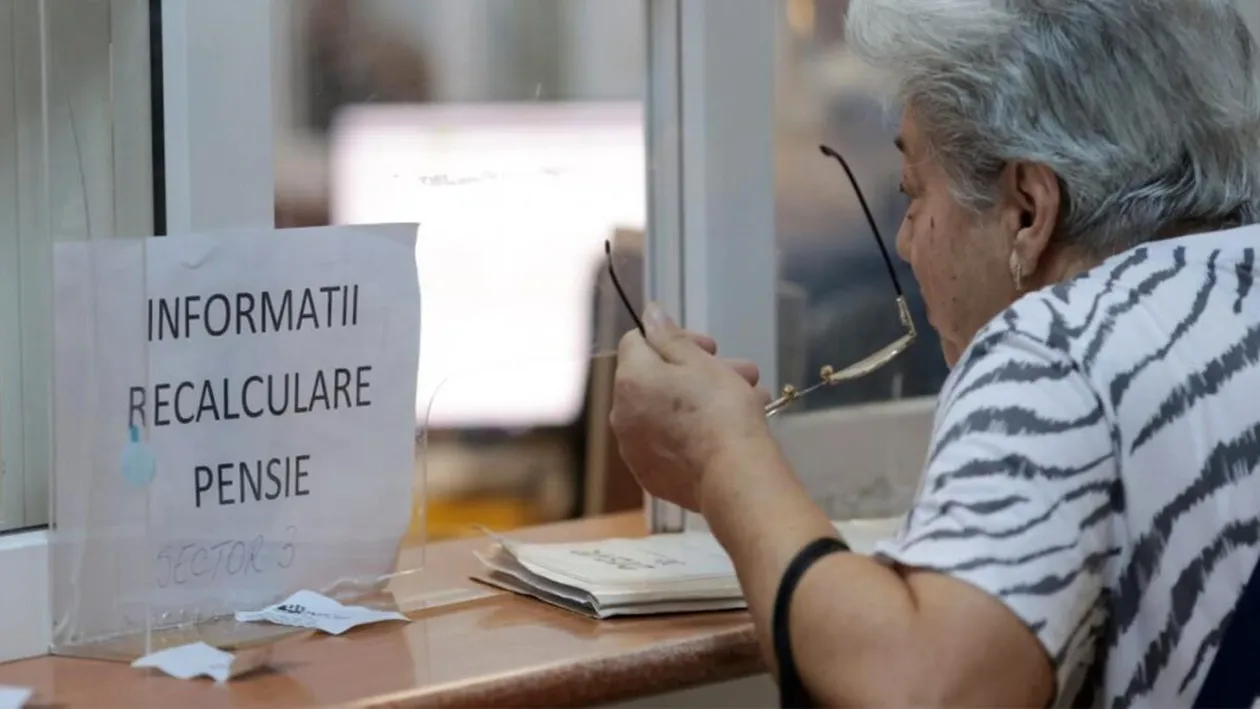 INFORMATII
RECALCULARE
PENSIE
SECTOR 3